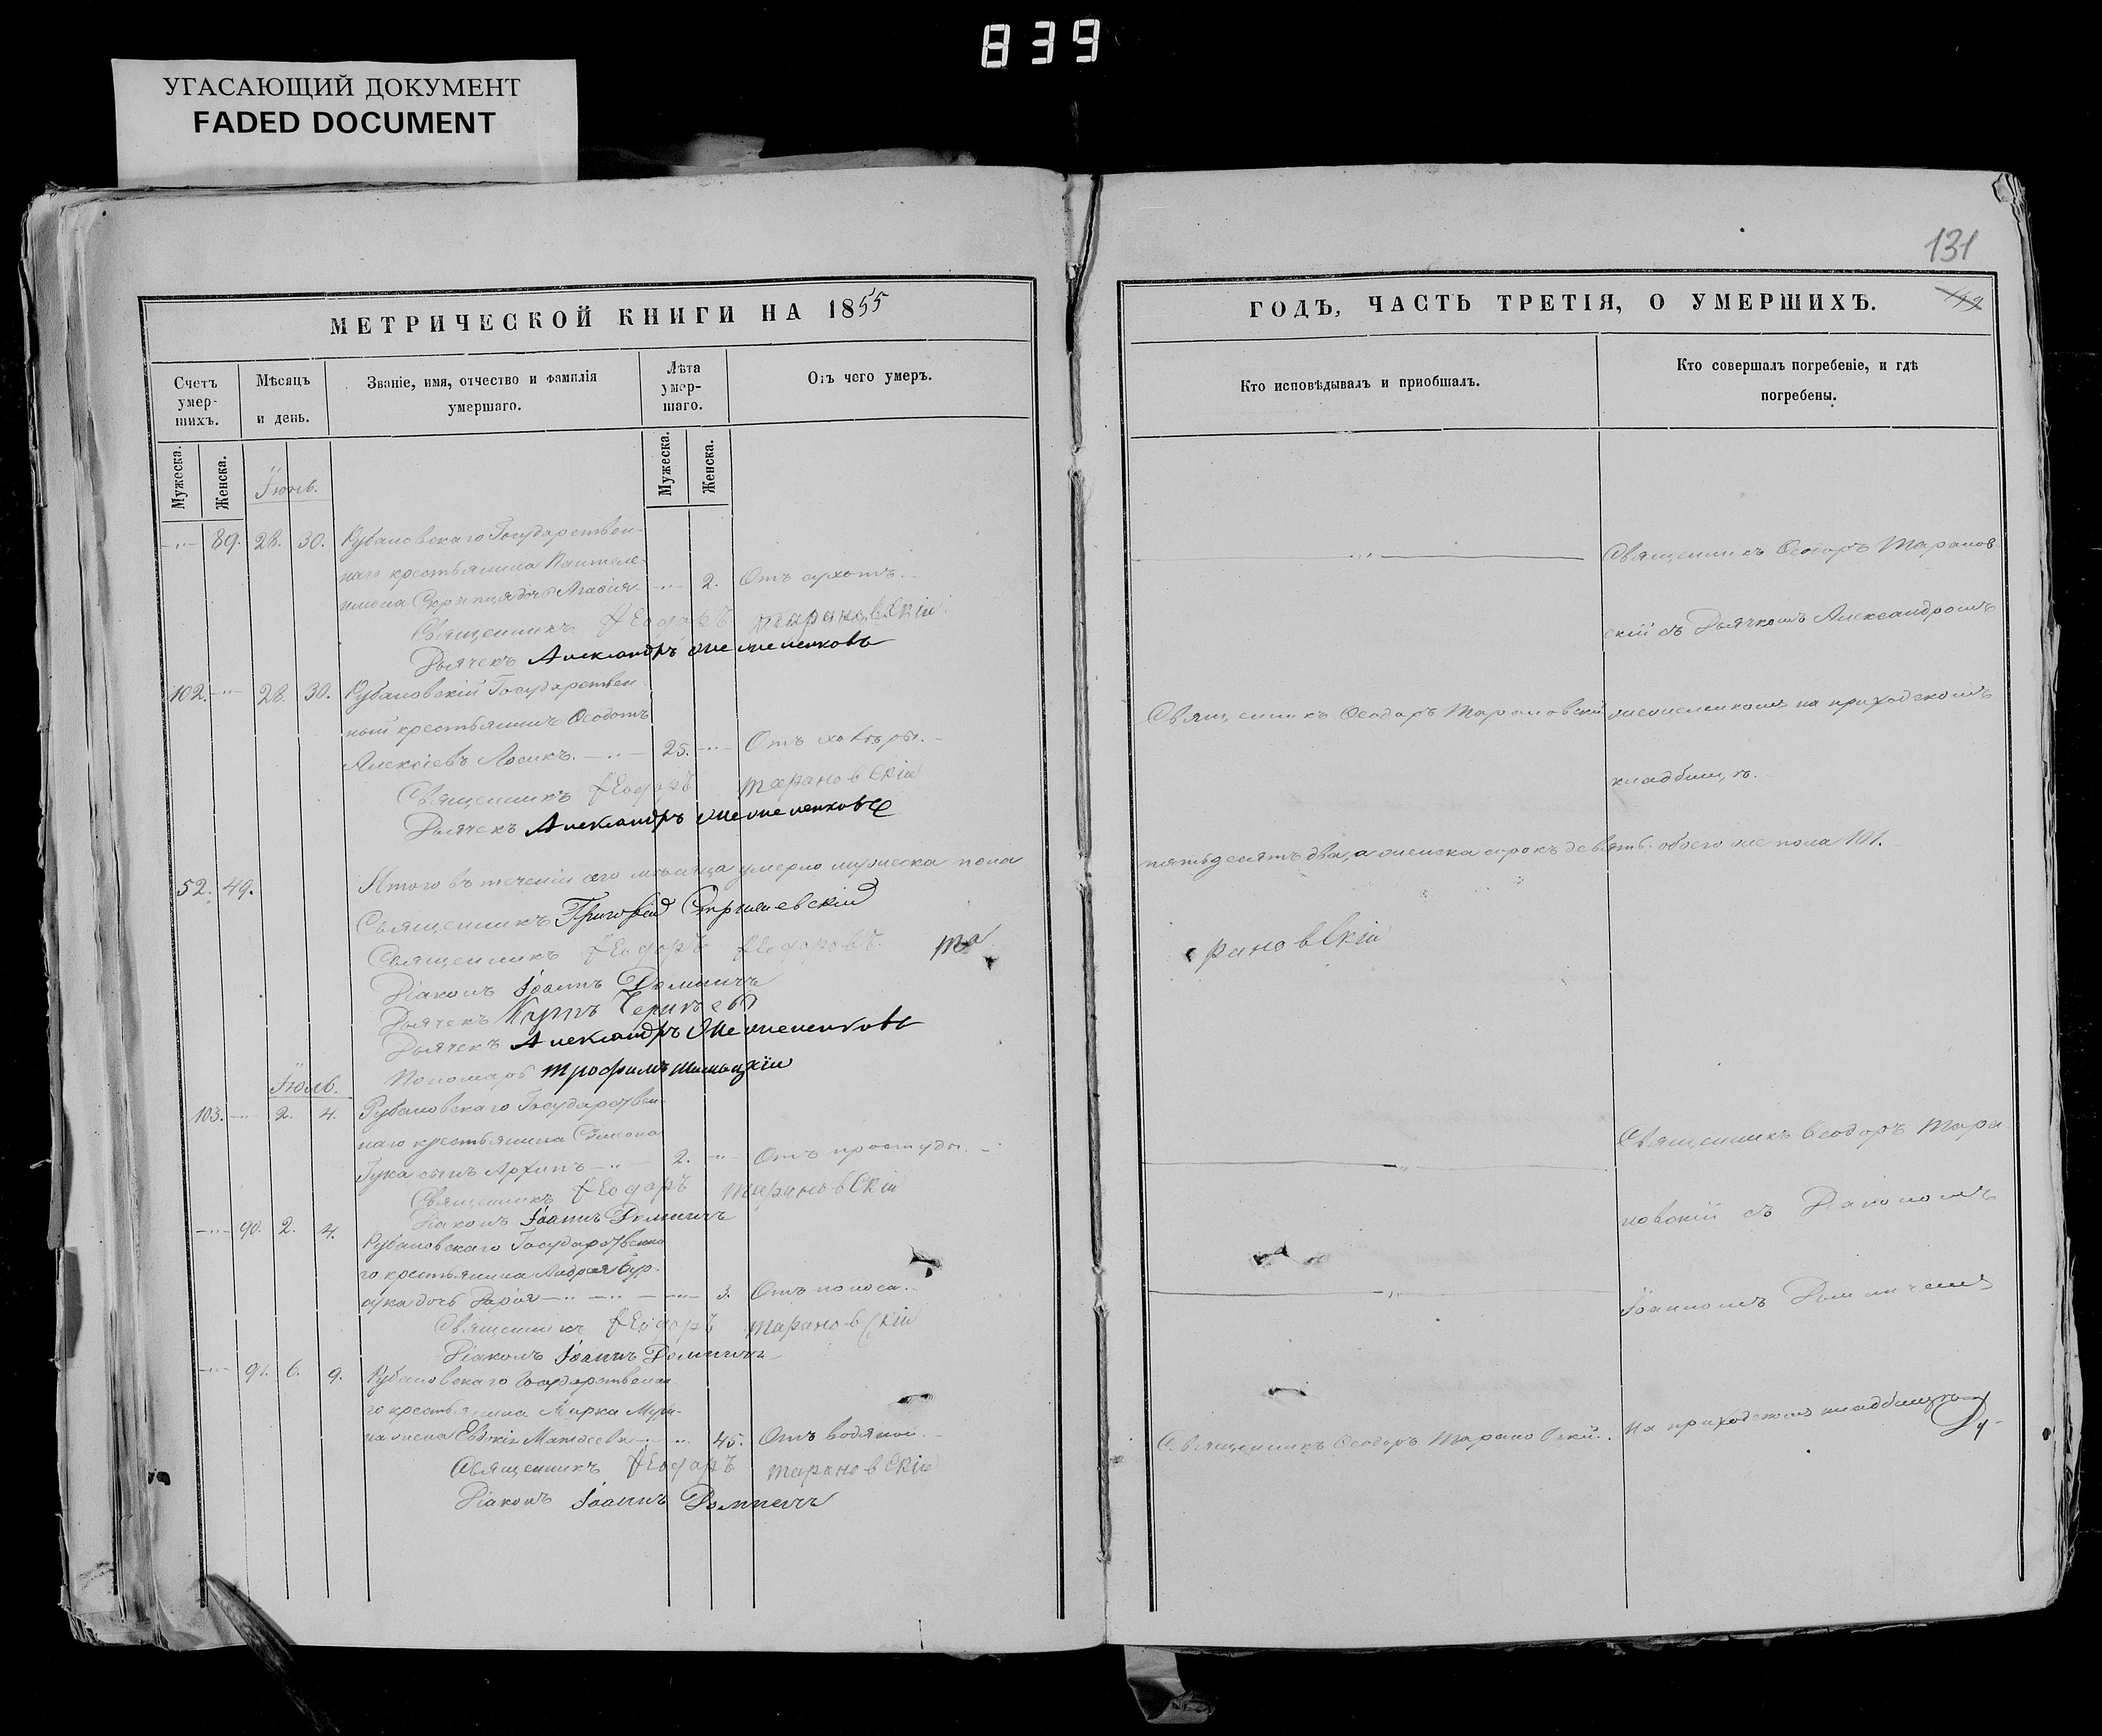 839
УГАСАЮЩИЙ ДОКУМЕНТ
FADED DOCUMENT
131
МЕТРИЧЕСКОЙ КНИГИ НА 1855
Счетъ умер-шихъ.
Мѣсяцъ и день.
Званіе, имя, отчество и фамилія умершаго.
Лѣта умер-шаго.
Отъ чего умеръ.
Мужеска.
Женска.
Мужеска.
Женска.
Іюнь.
89. 28. 30. Рубановскаго Государствен-
наго крестьянина Пантеле-
имона дочь 2. Отъ сухотъ.
Священникъ Ѳеодоръ Тарановскій
Дьячекъ Александръ
102. 28. 30. Рубановскій Государствен-
ный крестьянинъ Ѳеодотъ
Алексіевъ Лосикъ. 25. Отъ холеры.
Священникъ Ѳеодоръ Тарановскій
Дьячекъ Александръ
52. 49. Итого въ теченіи сего мѣсяца умерло мужеска пола
Священникъ Григорій
Священникъ Ѳеодоръ Ѳеодоровъ Та
Діаконъ Іоаннъ Доминичъ
Дьячекъ
Дьячекъ Александръ
Пономарь Трофимъ
Іюль.
103. 2. 4. Рубановскаго Государствен-
наго крестьянина Симеона
Гука сынъ Архипъ 2. Отъ простуды.
Священникъ Ѳеодоръ Тарановскій
Діаконъ Іоаннъ Доминичъ
90. 2. 4. Рубановскаго Государственна-
го крестьянина Андрея Бур-
дочь Дарія 3. Отъ поноса.
Священникъ Ѳеодоръ Тарановскій
Діаконъ Іоаннъ Доминичъ
91. 6. 9. Рубановскаго Государственна-
го крестьянина Марка
жена Евдокія Матѳеева 45. Отъ водяной.
Священникъ Ѳеодоръ Тарановскій
Діаконъ Іоаннъ Доминичъ
ГОДЪ, ЧАСТЬ ТРЕТІЯ, О УМЕРШИХЪ.
Кто исповѣдывалъ и пріобщалъ.
Кто совершалъ погребеніе, и гдѣ погребены.
Священникъ Ѳеодоръ Таранов-
скій съ Дьячкомъ Александромъ
Священникъ Ѳеодоръ Тарановскій
на приходскомъ
кладбищѣ.
пятьдесятъ два, а женска сорокъ девять; обоего же пола 101.
рановскій
Священникъ Ѳеодоръ Тара-
новскій съ Діакономъ
Іоанномъ Доминичемъ
Священникъ Ѳеодоръ Тарановскій.
На приходскомъ кладбищѣ